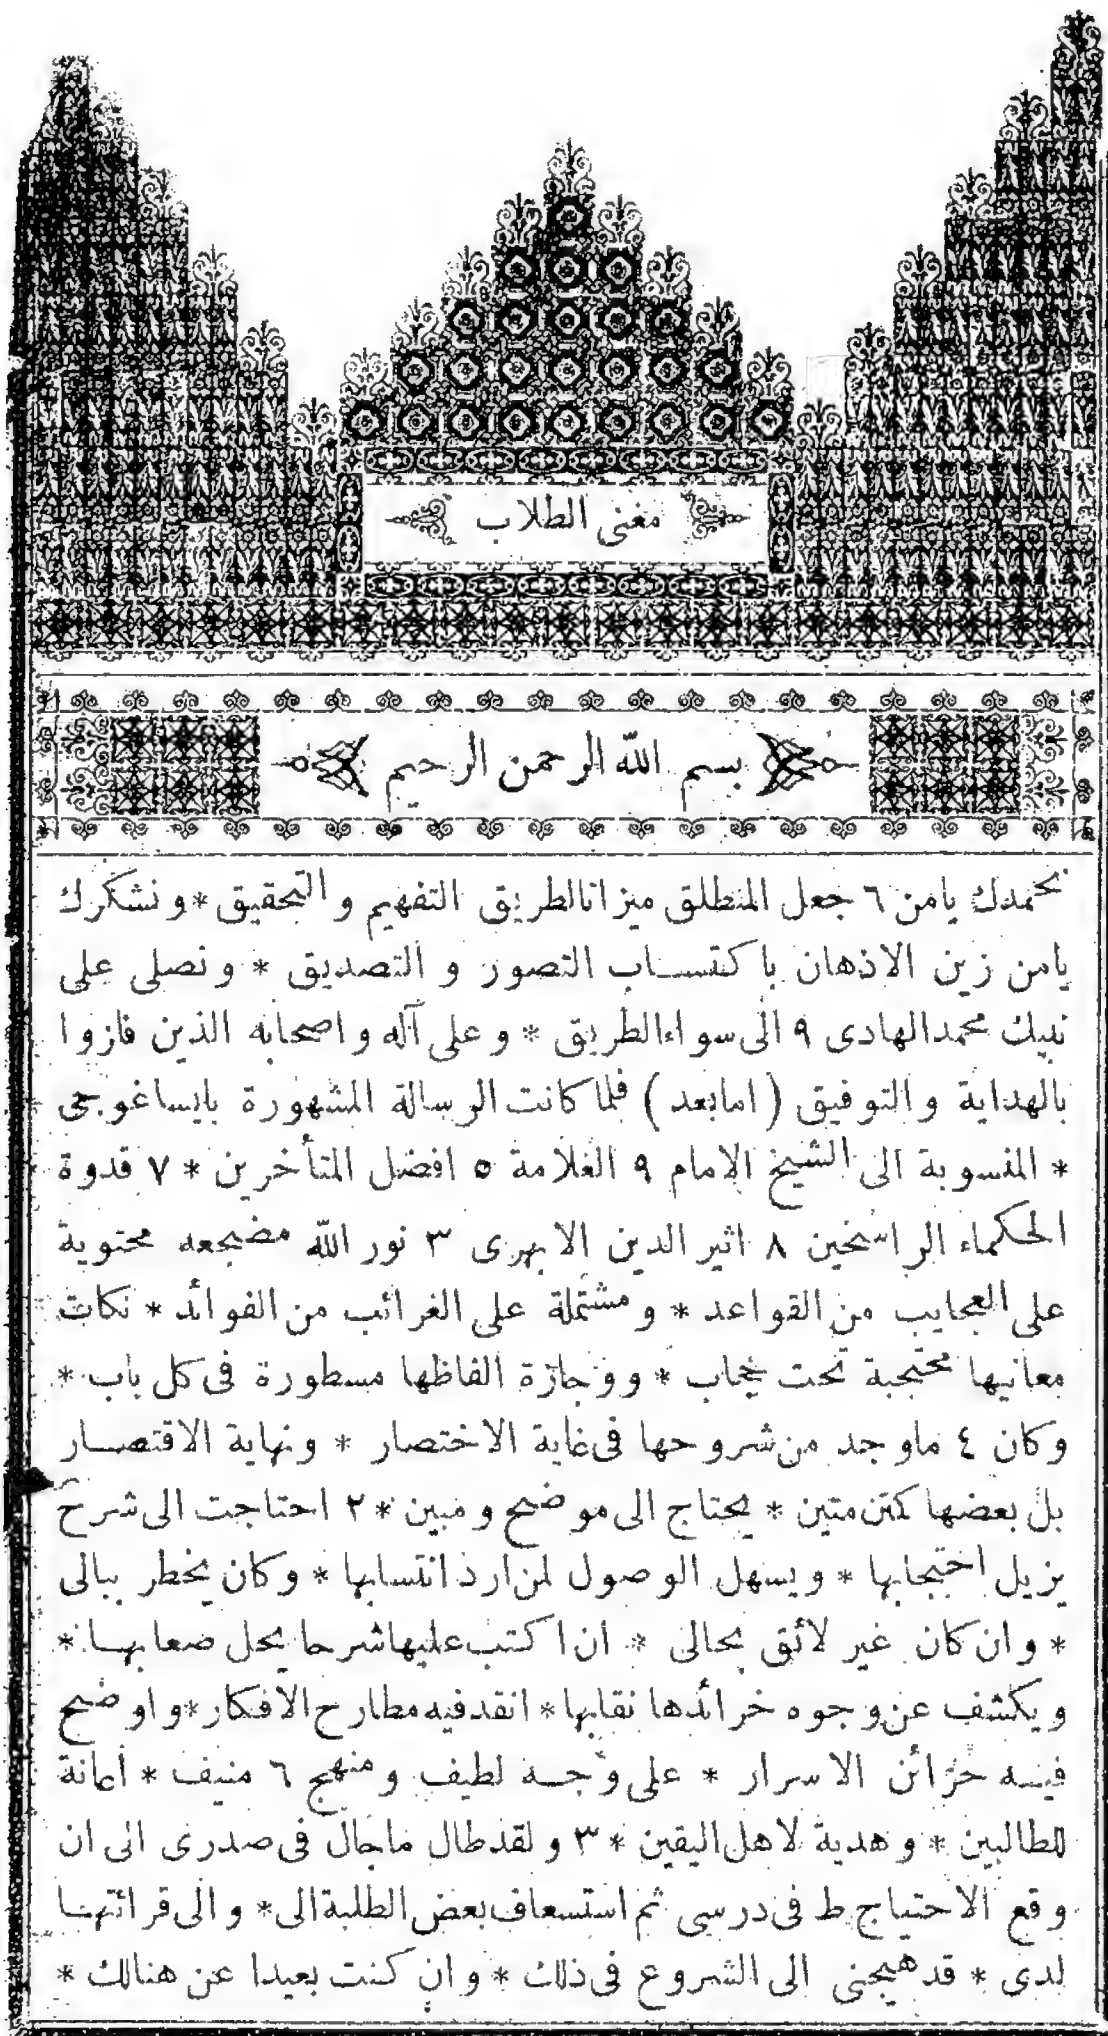 مغنى الطلاب
بسم الله الرحمن الرحيم
نحمدك يامن ٦ جعل المنطلق ميزانالطريق التفهيم والتحقيق * ونشكرك
يامن زين الاذهان باكتساب التصور و التصديق * ونصلى على
نبيك محمدالهادى ٩ الى سواءالطريق * وعلى آله واصحابه الذين فازوا
بالهداية والتوفيق ( امابعد ) فلما كانت الرسالة المشهورة بايساغوجى
* المنسوبة الى الشيخ الامام ٩ العلامة ٥ افضل المتأخرين * ٧ قدوة
الحكماء الراسخين ٨ اثير الدين الابهرى ٣ نور الله مضجعه محتوية
على العجايب من القواعد * ومشتملة على الغرائب من الفوائد * نكات
معانيها محتجبة تحت حجاب * ووجازة الفاظها مسطورة فى كل باب *
وكان ٤ ماوجد من شروحها فى غاية الاختصار * ونهاية الاقتصار
بل بعضها كمتن متين * يحتاج الى موضح ومبين * ٢ احتاجت الى شرح
يزيل احتجابها * ويسهل الوصول لمن ارد انتسابها * وكان يخطر ببالى
* وان كان غير لائق بحالى * ان اكتب عليهاشرحا يحل صعابها *
ويكشف عن وجوه خرائدها نقابها * انقدفيه مطارح الافكار * واوضح
فيه خزائن الاسرار * على وجه لطيف ومنهج ٦ منيف * اعانة
للطالبين * وهدية لاهل اليقين * ٣ ولقدطال ماجال فى صدرى الى ان
وقع الاحتياج ط فى درسى ثم استسعاف بعض الطلبة الى * والى قرائتها
لدى * قدهيجنى الى الشروع فى ذلك * وان كنت بعيدا عن هنالك *